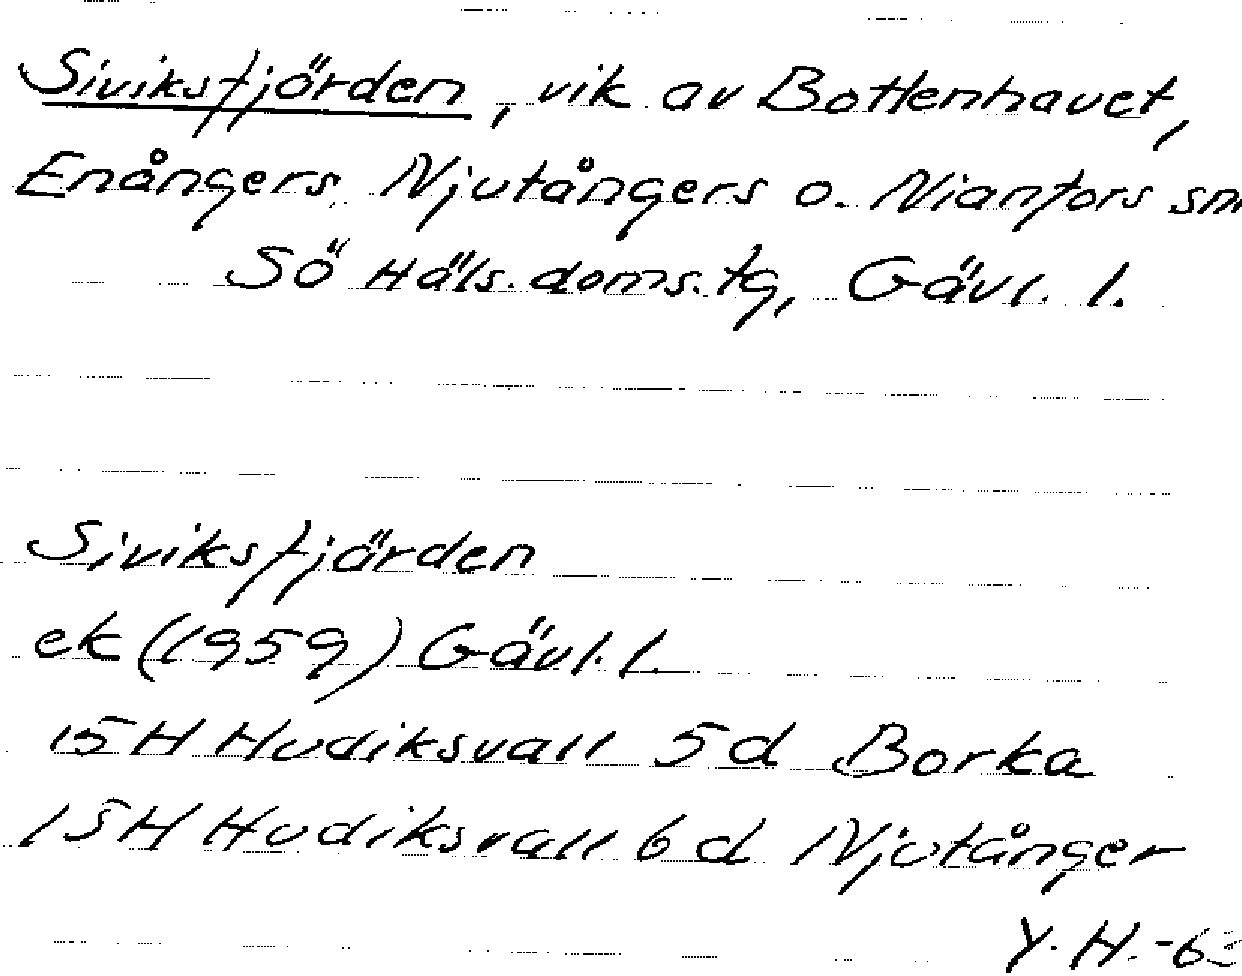 Siviksfjörden, vik av Bottenhavet,
Enångers, Njutångers o. Nianfors sn
Sö Häls. doms. tg, Gävl. l.
Siviksfjärden
ek (1959) Gävl. l.
15H Hudiksvall 5d Borka
15H Hudiksvall 6d Njutånger
Y. H.